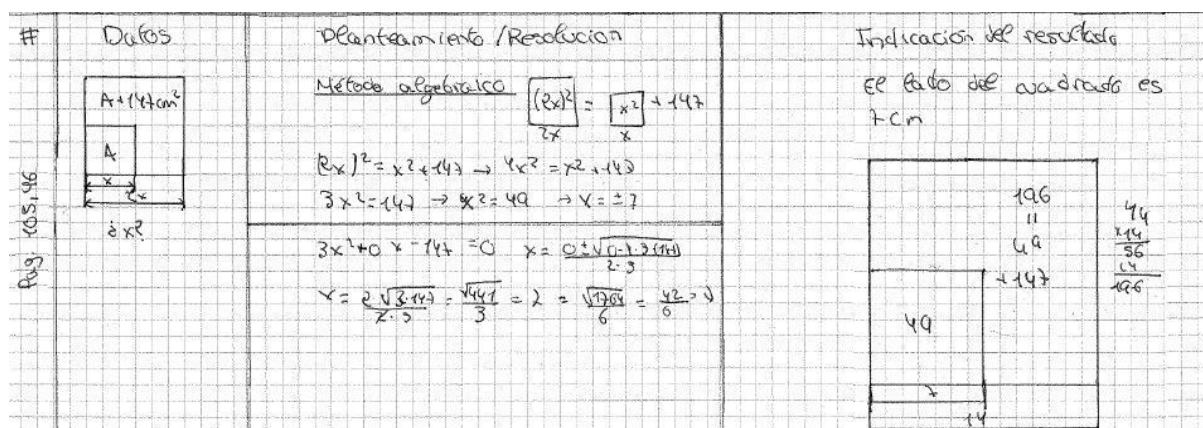 #
Pag 105, 46
Datos
A+147cm²
A
x
2x
¿x?
Planteamiento / Resolucion
Método algebraico
(2x)² = x² + 147
2x x
(2x)² = x² + 147 → 4x² = x² + 147
3x² = 147 → x² = 49 → x = ± 7
3x² + 0 x - 147 = 0 x =
2·3
x =
= √441/3 = 2 = √1764/6 =
Indicación del resultado
El lado del cuadrado es
7cm
196
=
49
+147
49
7
14
x14
56
196